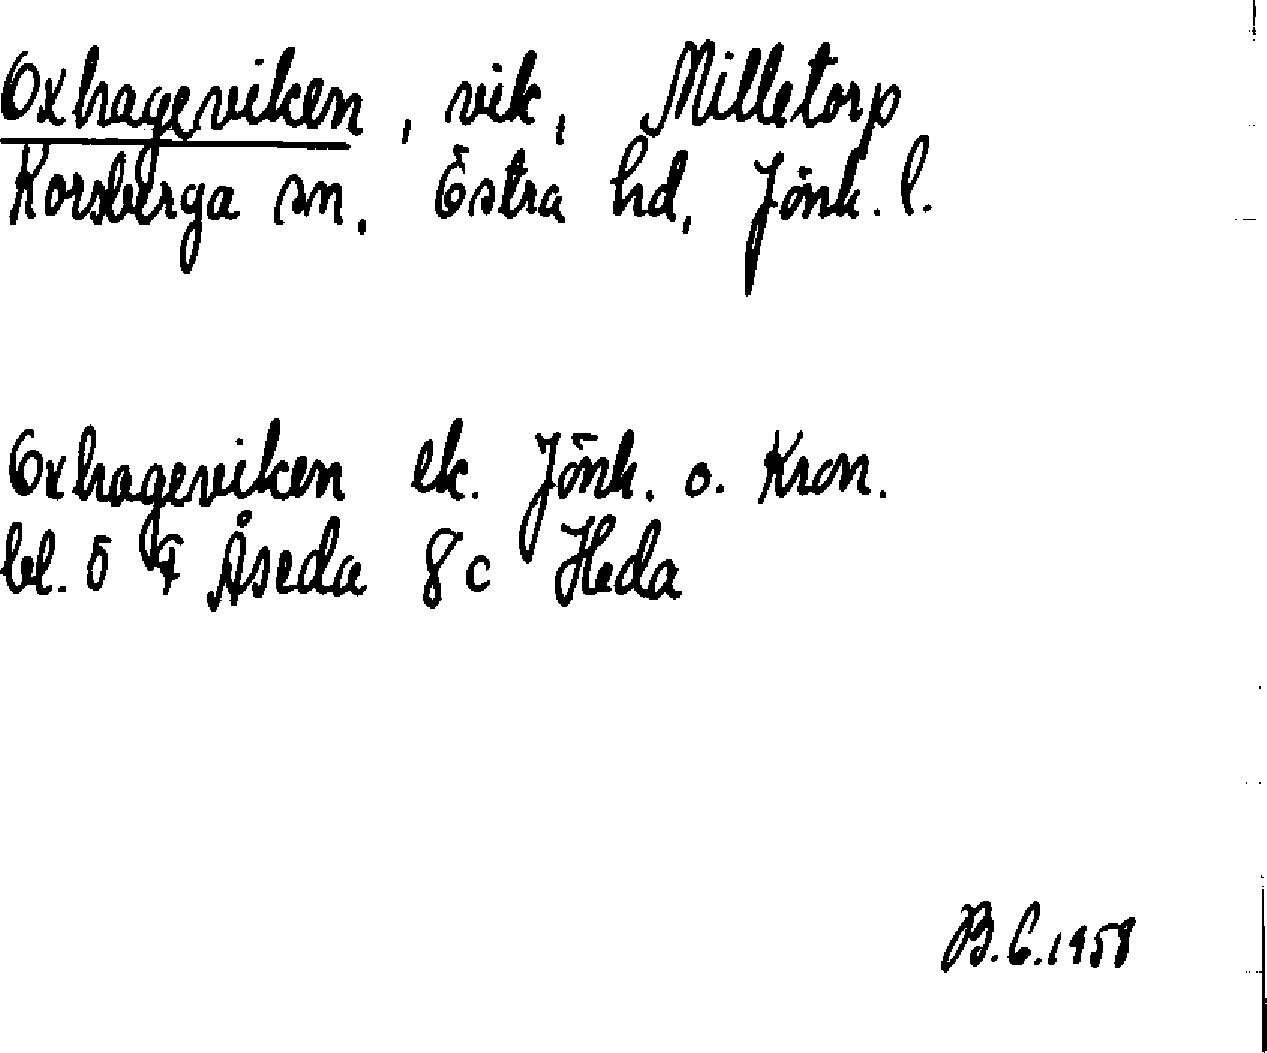 Oxhageviken, vik, Milletorp
Korsberga sn. Östra hd, Jönk. l.
Oxhageviken ek. Jönk. o. Kron.
bl. 5 F Åseda 8c Heda
1958